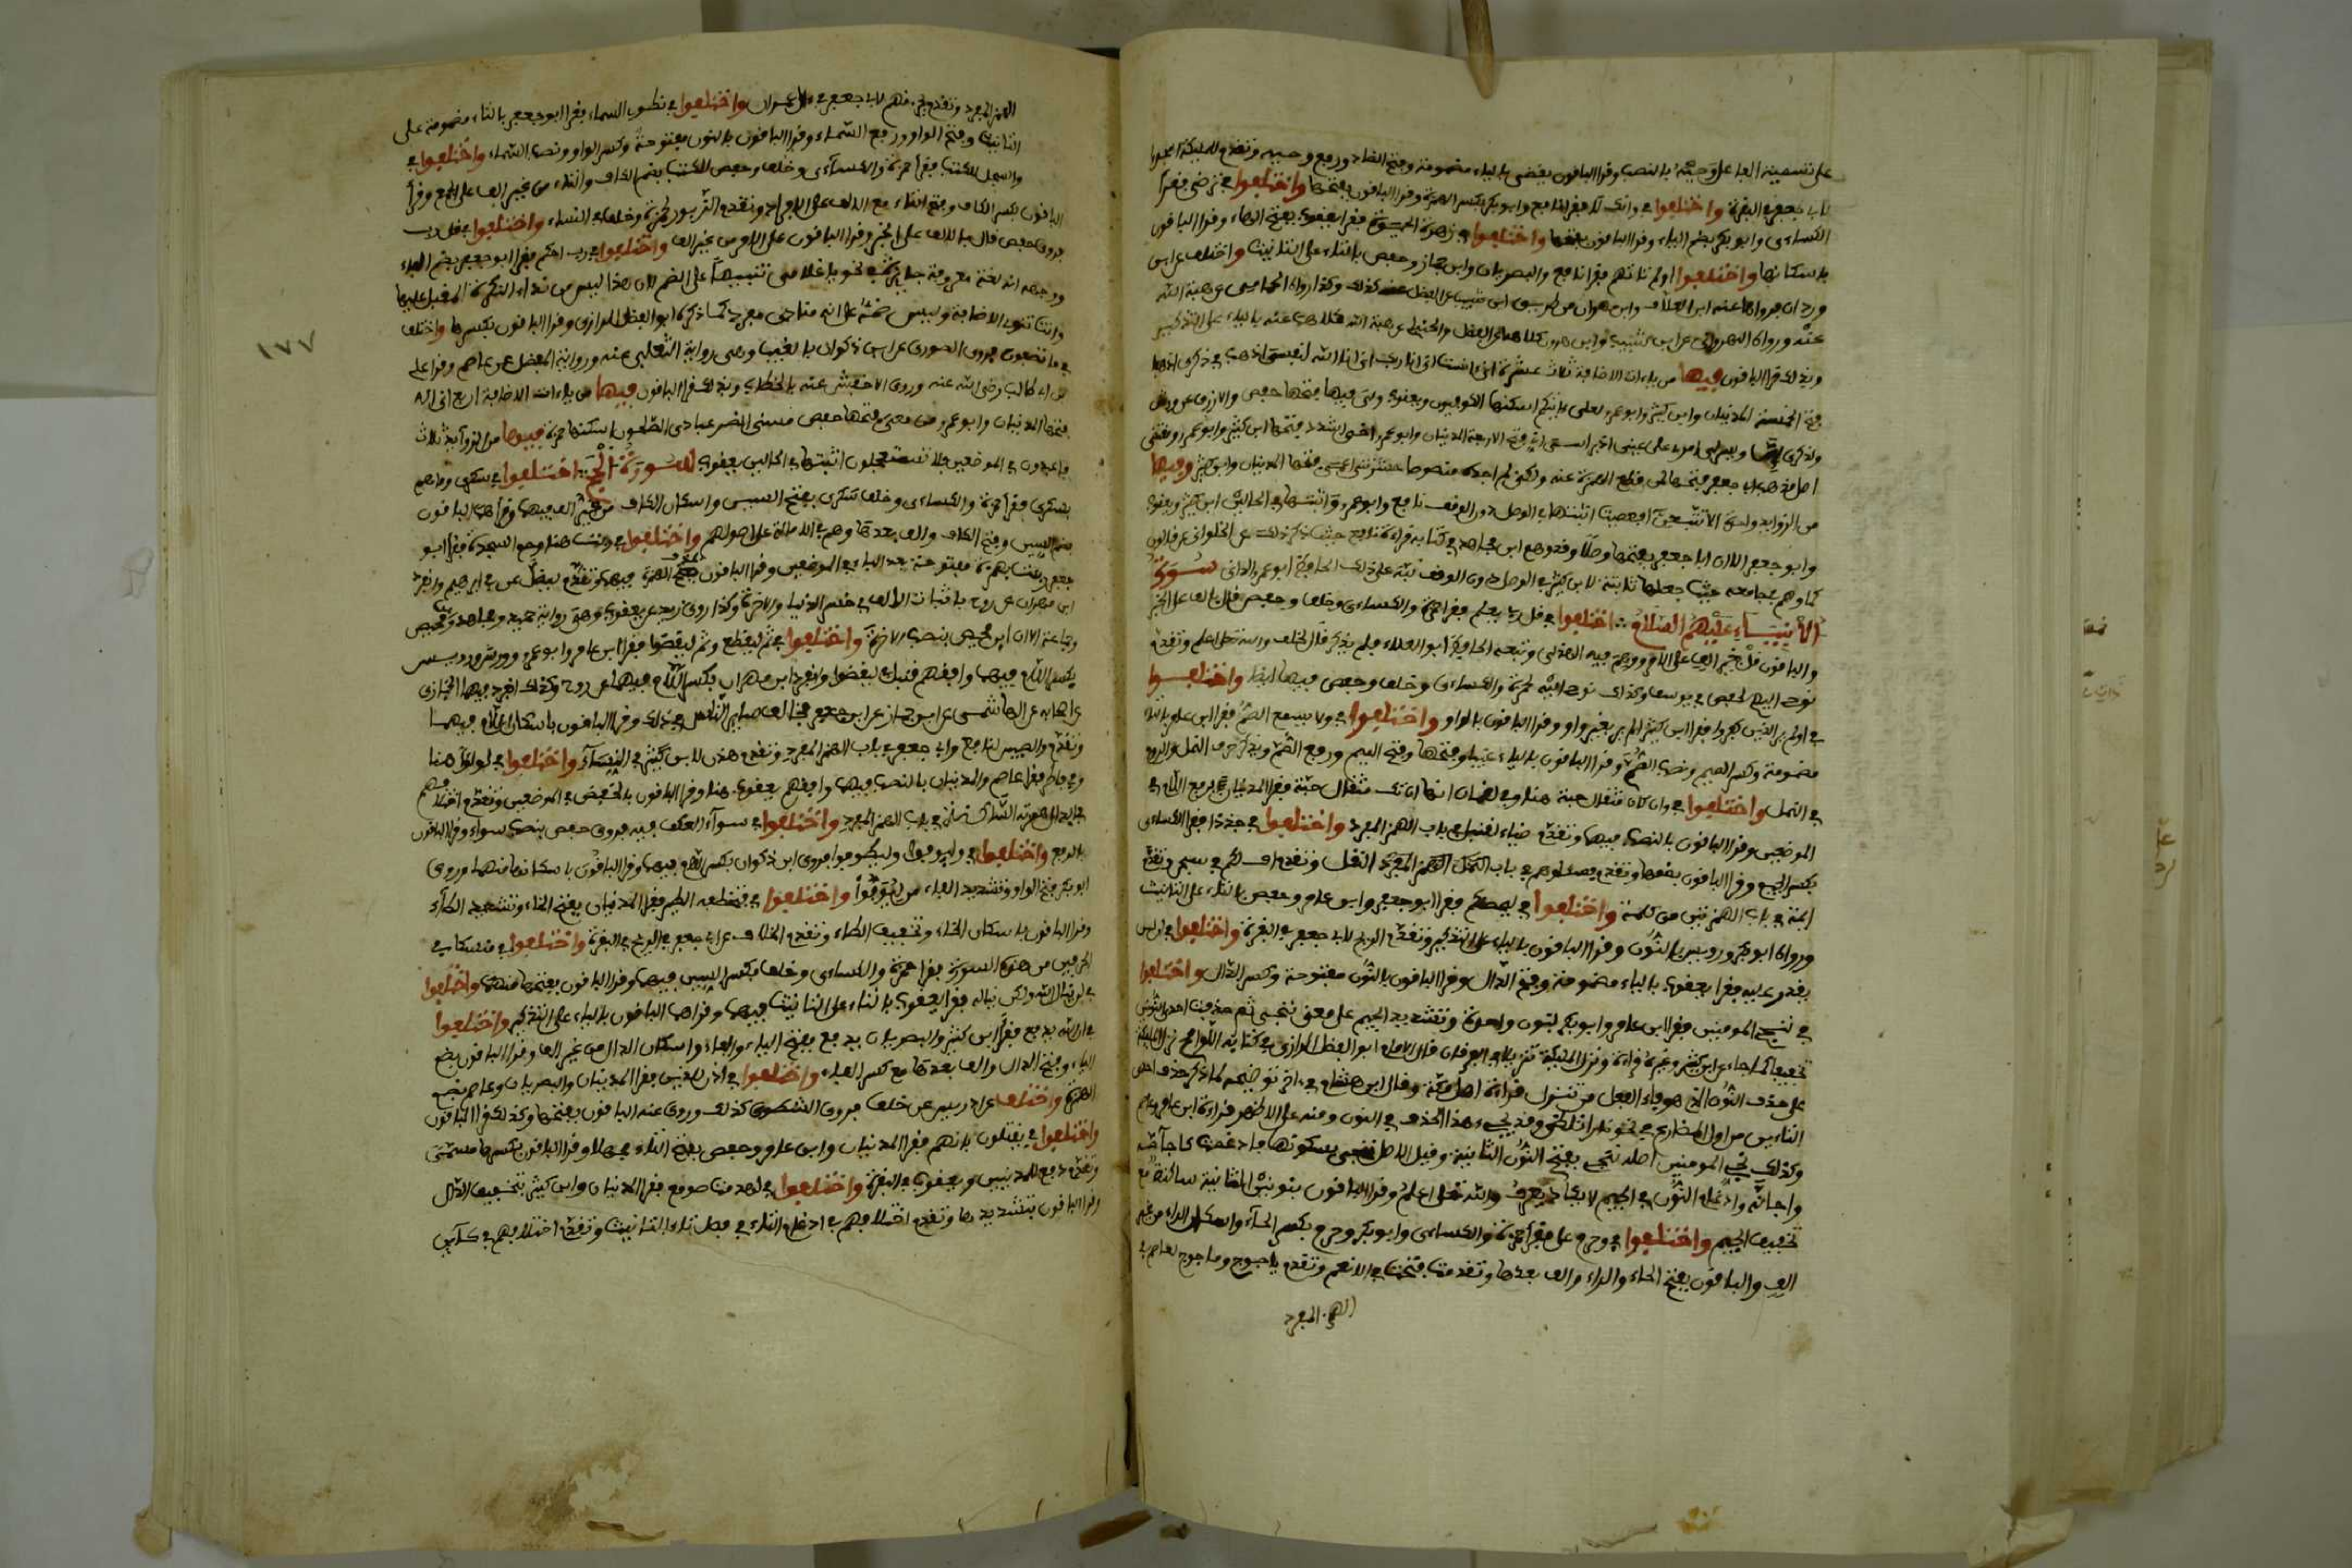 على تسمية الفاعل وحيه بالنصب وقرا الباقون يقضى بالياء مضمومة وفتح الضاد ورفع وحيه وتقدم للمليكة اسجدوا
لابى جعفر فى البقرة واختلفوا فى وانك لا فقرا نافع وابو بكر بكسر الهمزة وقرا الباقون بفتحها واختلفوا فى ترضى فقرا
الكساءى وابو بكر بضم التاء وقرا الباقون بفتحها واختلفوا فى زهرة الحيوة فقرا يعقوب بفتح الهاء وقرا الباقون
باسكانها واختلفوا اولم تاتهم فقرا نافع والبصريان وابن جماز وحفص بالتاء على التانيث واختلف عن ابن
وردان فرواها عنه ابن العلاف وابن مهران من طريق ابن شبيب عن الفضل كذلك وكذا رواه الحمامى عن هبة الله
عنه ورواه النهروانى عن ابن شبيب وابن هرون كلاهما عن الفضل والحنبلى عن هبة الله كلاهما عنه بالياء على التذكير
وبذلك قرا الباقون فيها من ياءات الاضافة ثلاث عشرة انى ءانست انى انا ربك انى انا الله لنفسى اذهب فى ذكرى اذهبا
فتح الخمسة المدنيان وابن كثير وابو عمرو لعلى ءاتيكم اسكنها الكوفيون ويعقوب ولى فيها فتحها حفص والازرق عن ورش
ولذكرى ان ويسر لى امرى على عينى اذ براسى انى فتح الاربعة المدنيان وابو عمرو اخى اشدد فتحها ابن كثير وابو عمرو ومقتضى
اصل مذهب ابى جعفر فتحها لمن قطع الهمزة عنه ولكنى لم اجده منصوصا حشرتنى اعمى فتحها المدنيان وابن كثير وفيها
من الزوايد واحدة الا تتبعن افعصيت اثبتها فى الوصل دون الوقف نافع وابو عمرو واثبتها فى الحالين ابن كثير ويعقوب
وابو جعفر الا ان ابا جعفر يفتحها وصلا وقد وهم ابن مجاهد فى كتابه قراءة نافع حيث ذكر ذلك عن الحلوانى عن قالون
كما وهم فى جامعه حيث جعلها ثابتة لابن كثير فى الوصل دون الوقف نبه على ذلك الحافظ ابو عمرو الدانى سورة
الانبياء عليهم السلام اختلفوا فى قل ربى يعلم فقرا حمزة والكساءى وخلف وحفص قال بالف على الخبر
والباقون قل بغير الف على الامر ووهم فيه الهذلى وتبعه الحافظ ابو العلاء فلم يذكر قال لخلف والله تعلى اعلم وتقدم
نوحى اليهم لحفص فى يوسف وكذلك نوحى اليه لحمزة والكساءى وخلف وحفص فيها ايضا واختلفوا
فى اولم ير الذين كفروا فقرا ابن كثير الم ير بغير واو وقرا الباقون بالواو واختلفوا فى ولا يسمع الصم فقرا ابن عامر بالتاء
مضمومة وكسر الميم ونصب الصم وقرا الباقون بالياء غيبا وفتحها وفتح الميم ورفع الصم ويذكر حرف النمل والروم
فى النمل واختلفوا فى وان كان مثقال حبة هنا وفى لقمان انها ان تك مثقال حبة فقرا المدنيان برفع اللام فى
الموضعين وقرا الباقون بالنصب فيهما وتقدم ضياء لقنبل فى باب الهمز المفرد واختلفوا فى جذاذا فقرا الكساءى
بكسر الجيم وقرا الباقون بضمها وتقدم فسلوهم فى باب النقل وتقدم اف لكم فى سبحن وتقدم
ايمة فى باب الهمزتين من كلمة واختلفوا فى ليحصنكم فقرا ابو جعفر وابن عامر وحفص بالتاء على التانيث
ورواه ابو بكر ورويس بالنون وقرا الباقون بالياء على التذكير وتقدم الريح لابى جعفر فى البقرة واختلفوا فى ان لن
يقدر عليه فقرا يعقوب بالياء مضمومة وفتح الدال وقرا الباقون بالنون مفتوحة وكسر الدال واختلفوا
فى ننجى المومنين فقرا ابن عامر وابو بكر بنون واحدة وتشديد الجيم على معنى ننجى ثم حذفت احدى النونين
تخفيفا كما جاء عن ابن كثير وغيره قراءة ونزل المليكة تنزيلا فى الفرقان قال الامام ابو الفضل الرازى فى كتابه اللوامح نزل المليكة
على حذف النون الذى هو فاء الفعل من تنزل قراءة اهل مكة وقال ابن هشام فى اخر توضيحه لما ذكر حذف احدى
التاءين من اول المضارع فى نحو نارا تلظى وقد يجىء هذا الحذف فى النون ومنه على الاظهر قراءة ابن عامر وعاصم
وكذلك نجى المومنين اصله ننجى بفتح النون الثانية وقيل الاصل ننجى بسكونها فادغمت كاجاصة
واجانة وادغام النون فى الجيم لا يكاد يعرف والله تعلى اعلم وقرا الباقون بنونين الثانية ساكنة مع
تخفيف الجيم واختلفوا فى وحرم على فقرا حمزة والكساءى وابو بكر وحرم بكسر الحاء واسكان الراء من غير
الف والباقون بفتح الحاء والراء والف بعدها وتقدمت فتحت فى الانعم وتقدم ياجوج وماجوج لعاصم فى
الهمز المفرد
١٧٧
الهمز المفرد وتقدم يحزنهم لابى جعفر فى ءال عمران واختلفوا فى نطوى السماء فقرا ابو جعفر بالتاء مضمومة على
التانيث وفتح الواو ورفع السماء وقرا الباقون بالنون مفتوحة وكسر الواو ونصب السماء واختلفوا فى
والسجل للكتب فقرا حمزة والكساءى وخلف وحفص للكتب بضم الكاف والتاء من غير الف على الجمع وقرأ
الباقون بكسر الكاف وفتح التاء مع الالف على الافراد وتقدم الزبور لحمزة وخلف فى النساء واختلفوا فى قل رب
فروى حفص قال بالالف على الخبر وقرا الباقون على الامر من غير الف واختلفوا فى رب احكم فقرا ابو جعفر بضم الباء
ووجهه انه لغة معروفة جايزة فى نحو يا غلامى تنبيها على الضم لان هذا ليس من نداء النكرة المقبل عليها
وانت تنوى الاضافة وليس ضمه على انه منادى مفرد كما ذكره ابو الفضل الرازى وقرا الباقون بكسرها واختلف
فى ما تصفون فروى الصورى عن ابن ذكوان بالغيب وهى رواية التغلبى عنه ورواية المفضل عن عاصم وقراءة على
بن ابى طالب رضى الله عنه وروى الاخفش عنه بالخطاب وبذلك قرا الباقون فيها من ياءات الاضافة اربع انى اله
فتحها المدنيان وابو عمرو ومن معى فتحها حفص مسنى الضر عبادى الصلحون اسكنها حمزة فيها من الزوايد ثلاث
فاعبدون فى الموضعين فلا تستعجلون اثبتها فى الحالين يعقوب سورة الحج اختلفوا فى سكرى وما هم
بسكرى فقرا حمزة والكساءى وخلف سكرى بفتح السين واسكان الكاف من غير الف فيهما وقرأ الباقون
بضم السين وفتح الكاف والف بعدها وهم فى الامالة على اصولهم واختلفوا فى وربت هنا وحم السجدة فقرا ابو
جعفر ربات بهمزة مفتوحة بعد الباء فى الموضعين وقرا الباقون بحذف الهمزة فيهما وتقدم ليضل عن فى ابرهيم وانفرد
ابن مهران عن روح باثبات الالف فى خسر الدنيا والاخرة وكذا روى زيد عن يعقوب وهى رواية حميد ومجاهد وابن محيصن
وجماعة الا ان ابن محيصن بنصب الاخرة واختلفوا فى ثم ليقطع وثم ليقضوا فقرا ابن عامر وابو عمرو وورش ورويس
بكسر اللام فيهما وافقهم قنبل فى ليقضوا وانفرد ابن مهران بكسر اللام فيهما عن روح وكذلك انفرد فيهما الخبازى
عن اصحابه عن الهاشمى عن ابن جماز عن ابى جعفر فخالف ساير الناس فى ذلك وقرا الباقون باسكان اللام فيهما
وتقدم والصبين لنافع وابى جعفر فى باب الهمز المفرد وتقدم هذان لابن كثير فى النساء واختلفوا فى لولوا هنا
وفى فاطر فقرا عاصم والمدنيان بالنصب فيهما وافقهم يعقوب هنا وقرا الباقون بالخفض فى الموضعين وتقدم اختلافهم
فى ابدال همزته الساكنة فى باب الهمز المفرد واختلفوا فى سواء العكف فيه فروى حفص بنصب سواء وقرا الباقون
بالرفع واختلفوا فى وليوفوا وليطوفوا فروى ابن ذكوان بكسر اللام فيهما وقرا الباقون باسكانها منهما وروى
ابو بكر فتح الواو وتشديد الفاء من ليوفوا واختلفوا فى فتخطفه الطير فقرا المدنيان بفتح الخاء وتشديد الطاء
وقرا الباقون باسكان الخاء وتخفيف الطاء وتقدم الخلاف عن ابى جعفر فى الريح فى البقرة واختلفوا فى منسكا فى
الحرفين من هذه السورة فقرا حمزة والكساءى وخلف بكسر السين فيهما وقرا الباقون بفتحها منهما واختلفوا
فى لن ينال الله ولكن يناله فقرا يعقوب بالتاء على التانيث فيهما وقراهما الباقون بالياء على التذكير واختلفوا
فى ان الله يدفع فقرا ابن كثير والبصريان يدفع بفتح الياء والفاء واسكان الدال من غير الف وقرا الباقون بضم
الياء وفتح الدال والف بعدها مع كسر الفاء واختلفوا فى اذن للذين فقرا المدنيان والبصريان وعاصم بضم
الهمزة واختلف عن ادريس عن خلف فروى الشطوى كذلك وروى عنه الباقون بفتحها وكذلك قرا الباقون
واختلفوا فى يقتلون بانهم فقرا المدنيان وابن عامر وحفص بفتح التاء مجهلا وقرا الباقون بكسرها مسمى
وتقدم دفع للمدنيين ويعقوب فى البقرة واختلفوا فى لهدمت صومع فقرا المدنيان وابن كثير بتخفيف الدال
وقرا الباقون بتشديدها وتقدم اختلافهم فى ادغام التاء فى فصل تاء التانيث وتقدم اختلافهم فى كاين